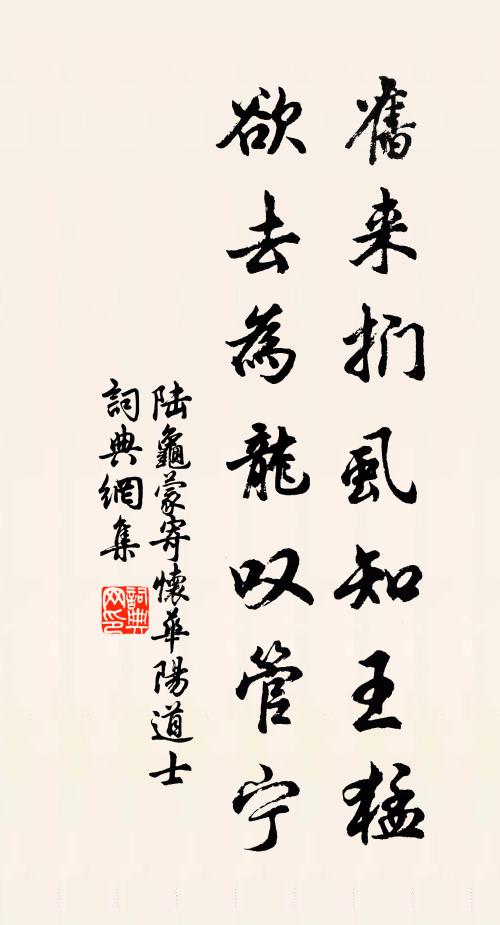 舊来捫虱知王猛
欲去為龍叹管宁
陆龜蒙寄懷華陽道士
詞典網集
詞典网印